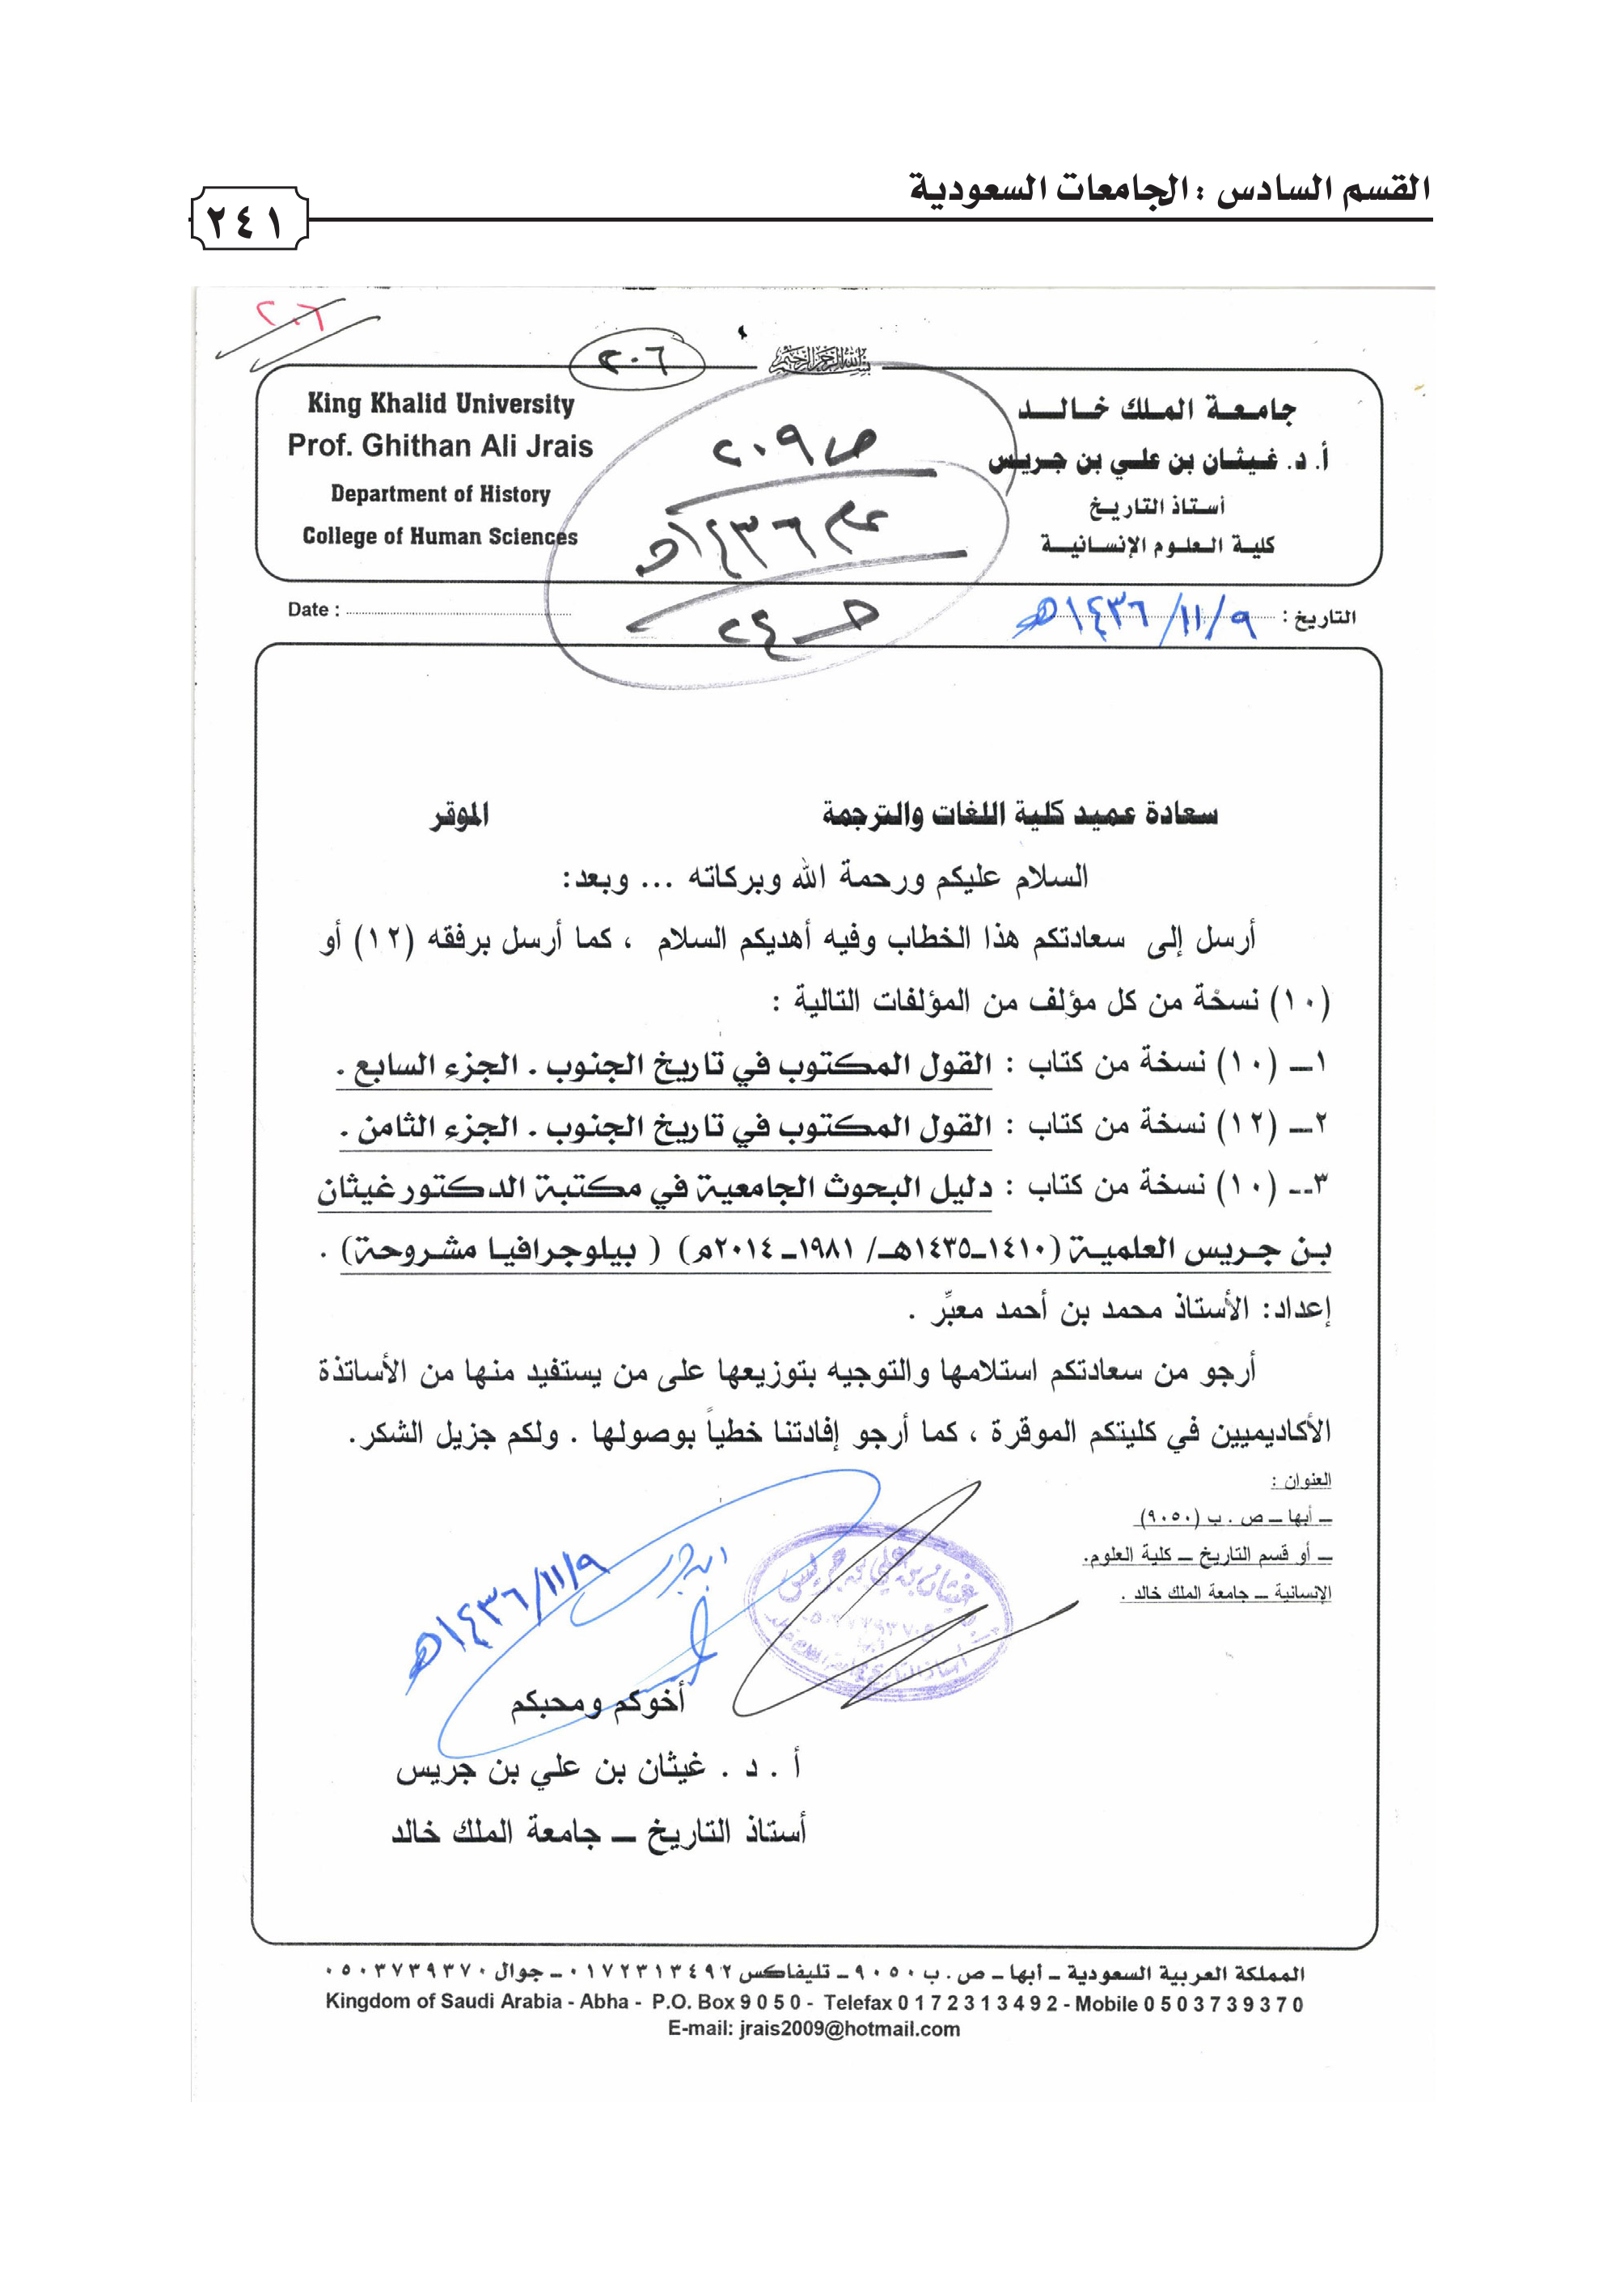 القسم السادس : الجامعات السعودية
٢٤١
٢٠٦
٢٠٦
بسم الله الرحمن الرحيم
جامعة الملك خالد
أ. د. غيثان بن علي بن جريس
أستاذ التاريخ
كلية العلوم الإنسانية
King Khalid University
Prof. Ghithan Ali Jrais
Department of History
College of Human Sciences
ص ٢٠٩
عام ١٤٣٦هـ
التاريخ : ٩/١١/١٤٣٦هـ
Date :
سعادة عميد كلية اللغات والترجمة الموقر
السلام عليكم ورحمة الله وبركاته ... وبعد:
أرسل إلى سعادتكم هذا الخطاب وفيه أهديكم السلام ، كما أرسل برفقه (١٢) أو
(١٠) نسخة من كل مؤلف من المؤلفات التالية :
١ـ (١٠) نسخة من كتاب : القول المكتوب في تاريخ الجنوب . الجزء السابع .
٢ـ (١٢) نسخة من كتاب : القول المكتوب في تاريخ الجنوب . الجزء الثامن .
٣ـ (١٠) نسخة من كتاب : دليل البحوث الجامعية في مكتبة الدكتور غيثان
بن جريس العلمية (١٤١٠ـ١٤٣٥هـ/ ١٩٨١ـ ٢٠١٤م) ( بيلوجرافيا مشروحة) .
إعداد: الأستاذ محمد بن أحمد معبِّر .
أرجو من سعادتكم استلامها والتوجيه بتوزيعها على من يستفيد منها من الأساتذة
الأكاديميين في كليتكم الموقرة ، كما أرجو إفادتنا خطياً بوصولها . ولكم جزيل الشكر.
العنوان :
ـ أبها ـ ص . ب (٩٠٥٠)
ـ أو قسم التاريخ ـ كلية العلوم.
الإنسانية ـ جامعة الملك خالد .
غيثان بن علي بن جريس
ابن جريس
٩/١١/١٤٣٦هـ
أخوكم ومحبكم
أ . د . غيثان بن علي بن جريس
أستاذ التاريخ ـ جامعة الملك خالد
المملكة العربية السعودية ـ أبها ـ ص . ب ٩٠٥٠ ـ تليفاكس ٠١٧٢٣١٣٤٩٢ ـ جوال ٠٥٠٣٧٣٩٣٧٠
Kingdom of Saudi Arabia - Abha - P.O. Box 9 0 5 0 - Telefax 0 1 7 2 3 1 3 4 9 2 - Mobile 0 5 0 3 7 3 9 3 7 0
E-mail: jrais2009@hotmail.com